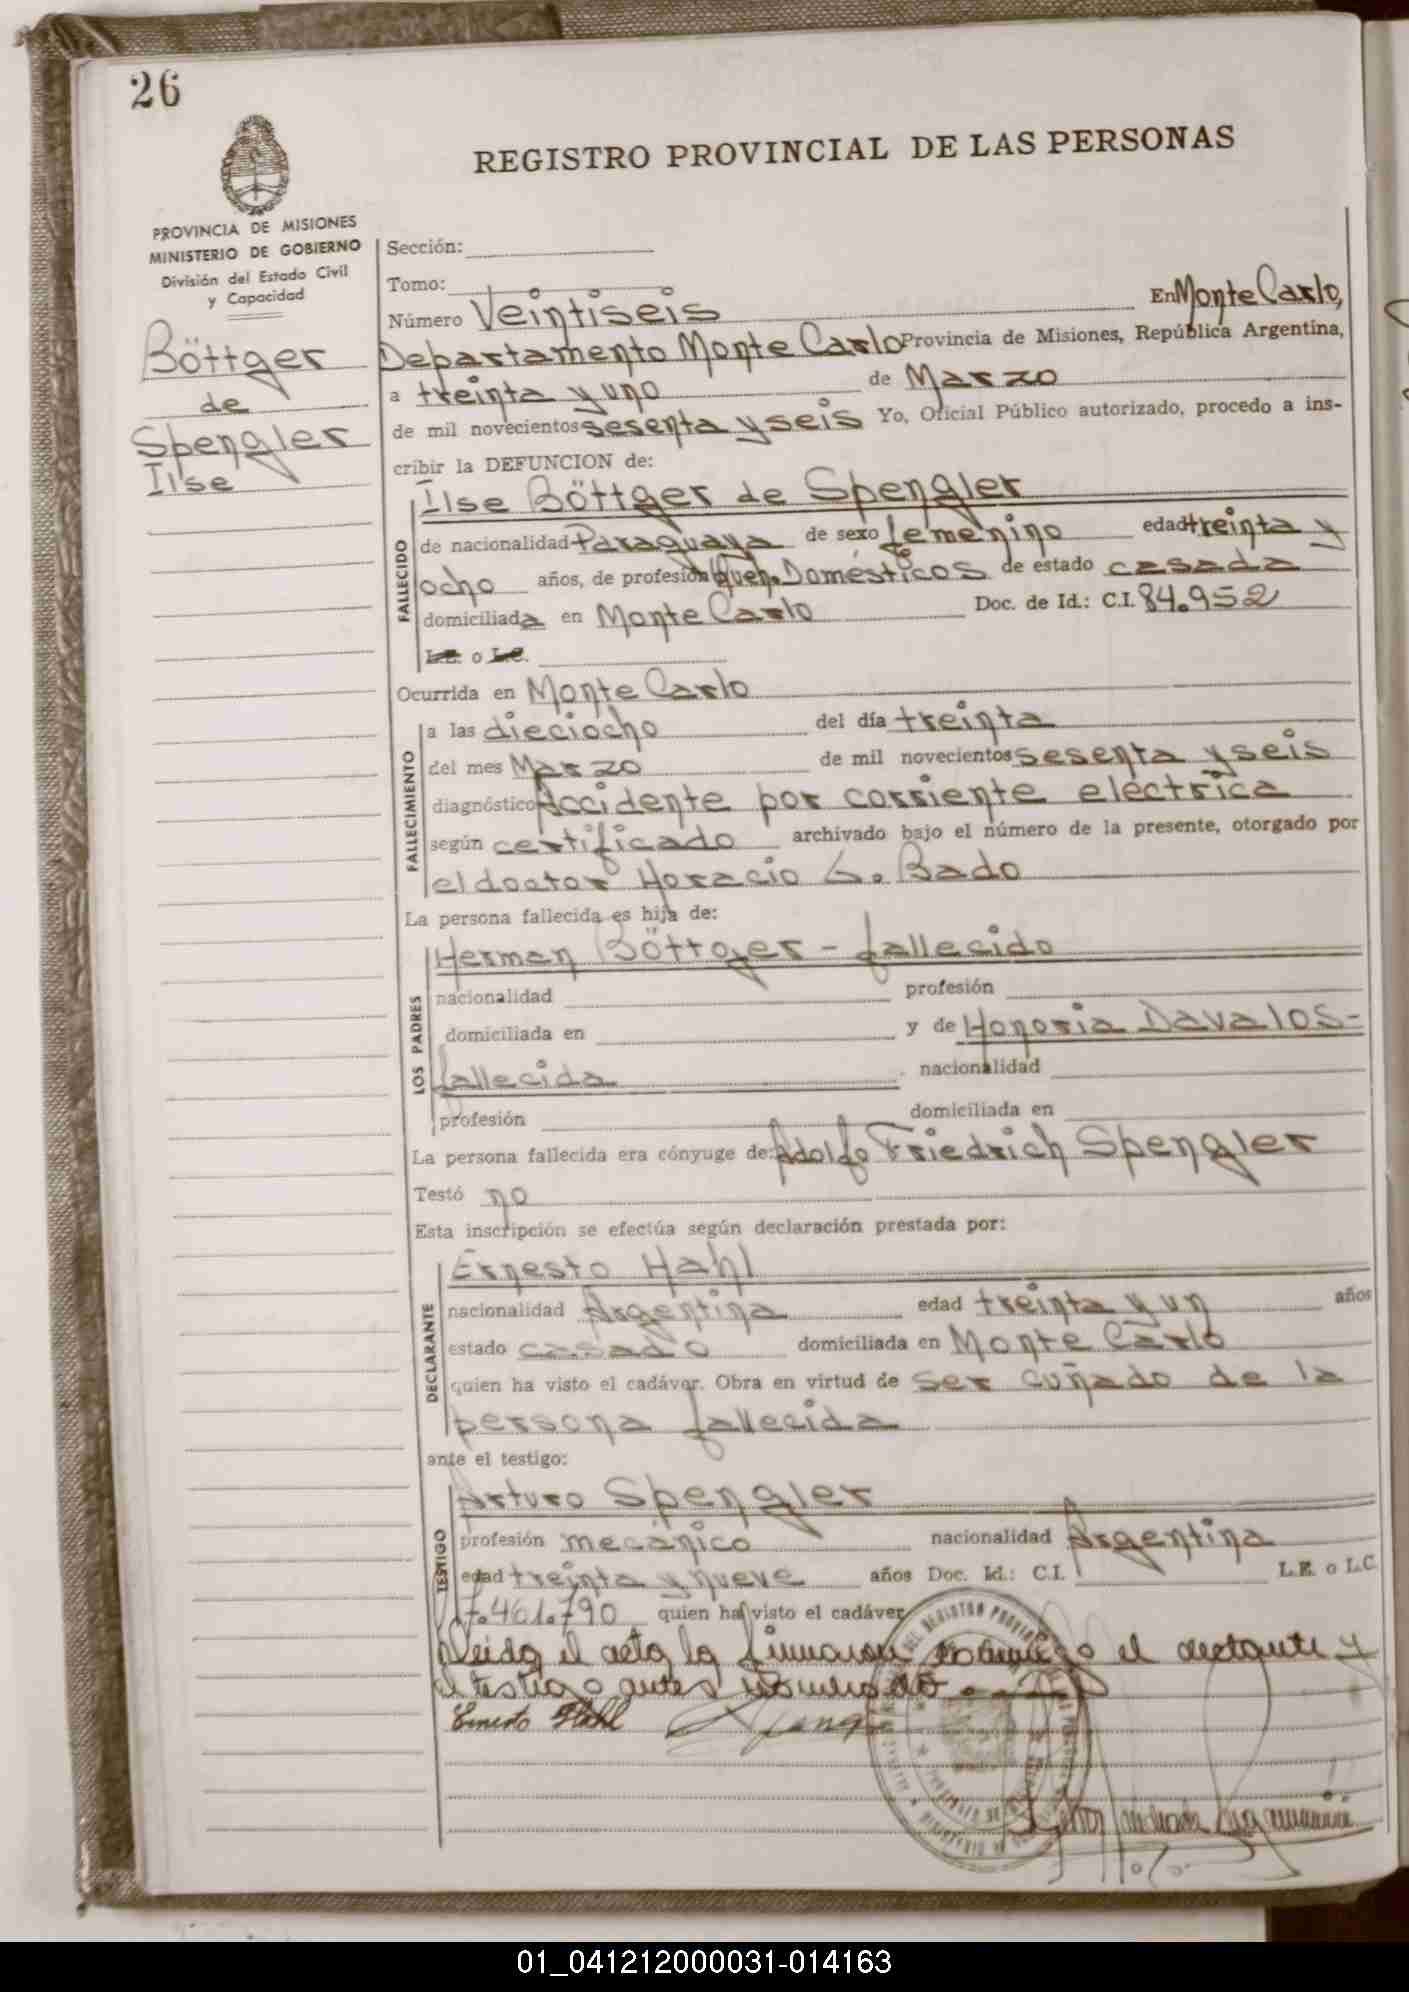 26
REGISTRO PROVINCIAL DE LAS PERSONAS
PROVINCIA DE MISIONES
MINISTERIO DE GOBIERNO
División del Estado Civil
y Capacidad
Böttger
de
Spengler
Ilse
Sección:
Tomo:
Número Veintiseis En Monte Carlo,
Departamento Monte Carlo Provincia de Misiones, República Argentina,
a treinta y uno de Marzo
de mil novecientos sesenta y seis Yo, Oficial Público autorizado, procedo a ins-
cribir la DEFUNCION de:
FALLECIDO
Ilse Böttger de Spengler
de nacionalidad Paraguaya de sexo femenino edad treinta y
ocho años, de profesión Queh. Domésticos de estado casada
domiciliada en Monte Carlo Doc. de Id.: C.I. 84.952
L.E. o L.C.
Ocurrida en Monte Carlo
FALLECIMIENTO
a las dieciocho del día treinta
del mes Marzo de mil novecientos sesenta y seis
diagnóstico Accidente por corriente eléctrica
según certificado archivado bajo el número de la presente, otorgado por
el doctor Horacio G. Bado
La persona fallecida es hija de:
LOS PADRES
Herman Böttger - fallecido
nacionalidad profesión
domiciliada en y de Honoria Davalos-
fallecida nacionalidad
profesión domiciliada en
La persona fallecida era cónyuge de: Adolfo Friedrich Spengler
Testó no
Esta inscripción se efectúa según declaración prestada por:
DECLARANTE
Ernesto Hahl
nacionalidad Argentina edad treinta y un años
estado casado domiciliada en Monte Carlo
quien ha visto el cadáver. Obra en virtud de ser cuñado de la
persona fallecida
ante el testigo:
TESTIGO
Arturo Spengler
profesión mecánico nacionalidad Argentina
edad treinta y nueve años Doc. Id.: C.I. L.E. o L.C.
7.461.790 quien ha visto el cadáver
Leida el acta la firmaron conmigo el
el testigo antes
Ernesto Hahl
01_041212000031-014163